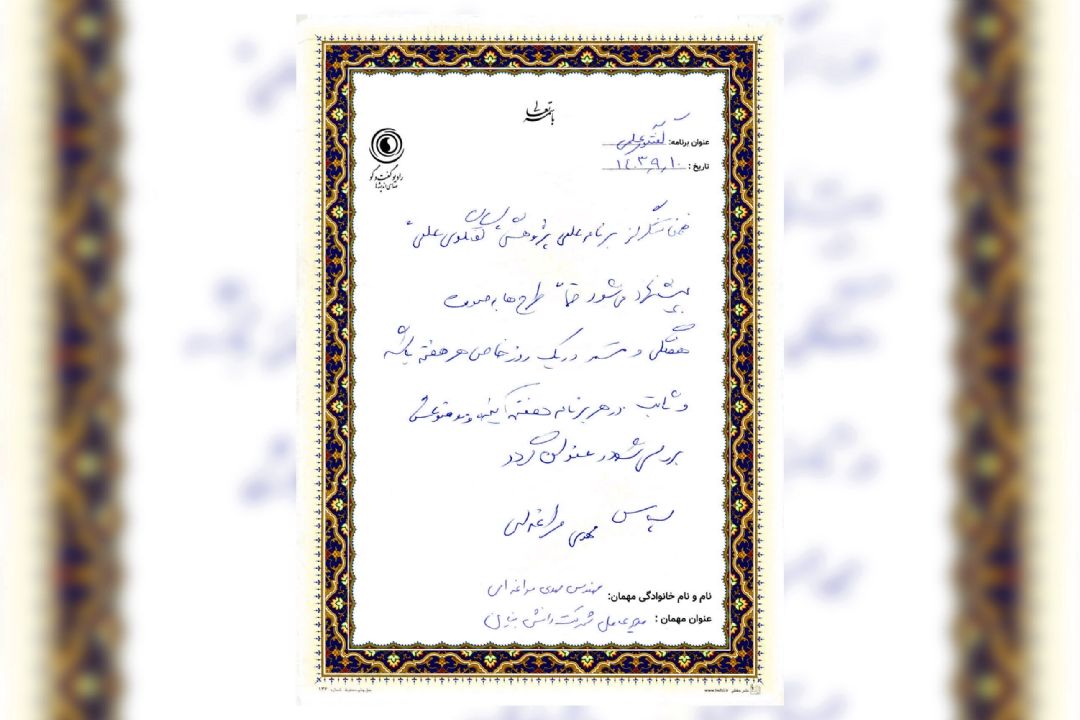 باسمه تعالی
عنوان برنامه: گفتگوی علمی
تاریخ: ۱۴۰۳٫۹٫۱۰
رادیو گفت و گو
صدای اندیشه‌ها
ضمن تشکر از برنامه علمی پژوهشی "گفتگوی علمی"
پیشنهاد می‌شود حتماً طرح ها به صورت
هفتگی و در یک روز خاص هر هفته باشد
و ثابت در هر برنامه هفته آینده و موضوعش
بررسی شود عنوان گردد
سپاس
مهدی مراغه ای
نام و نام خانوادگی مهمان: مهندس مهدی مراغه ای
عنوان مهمان: مدیرعامل شرکت دانش بنیان